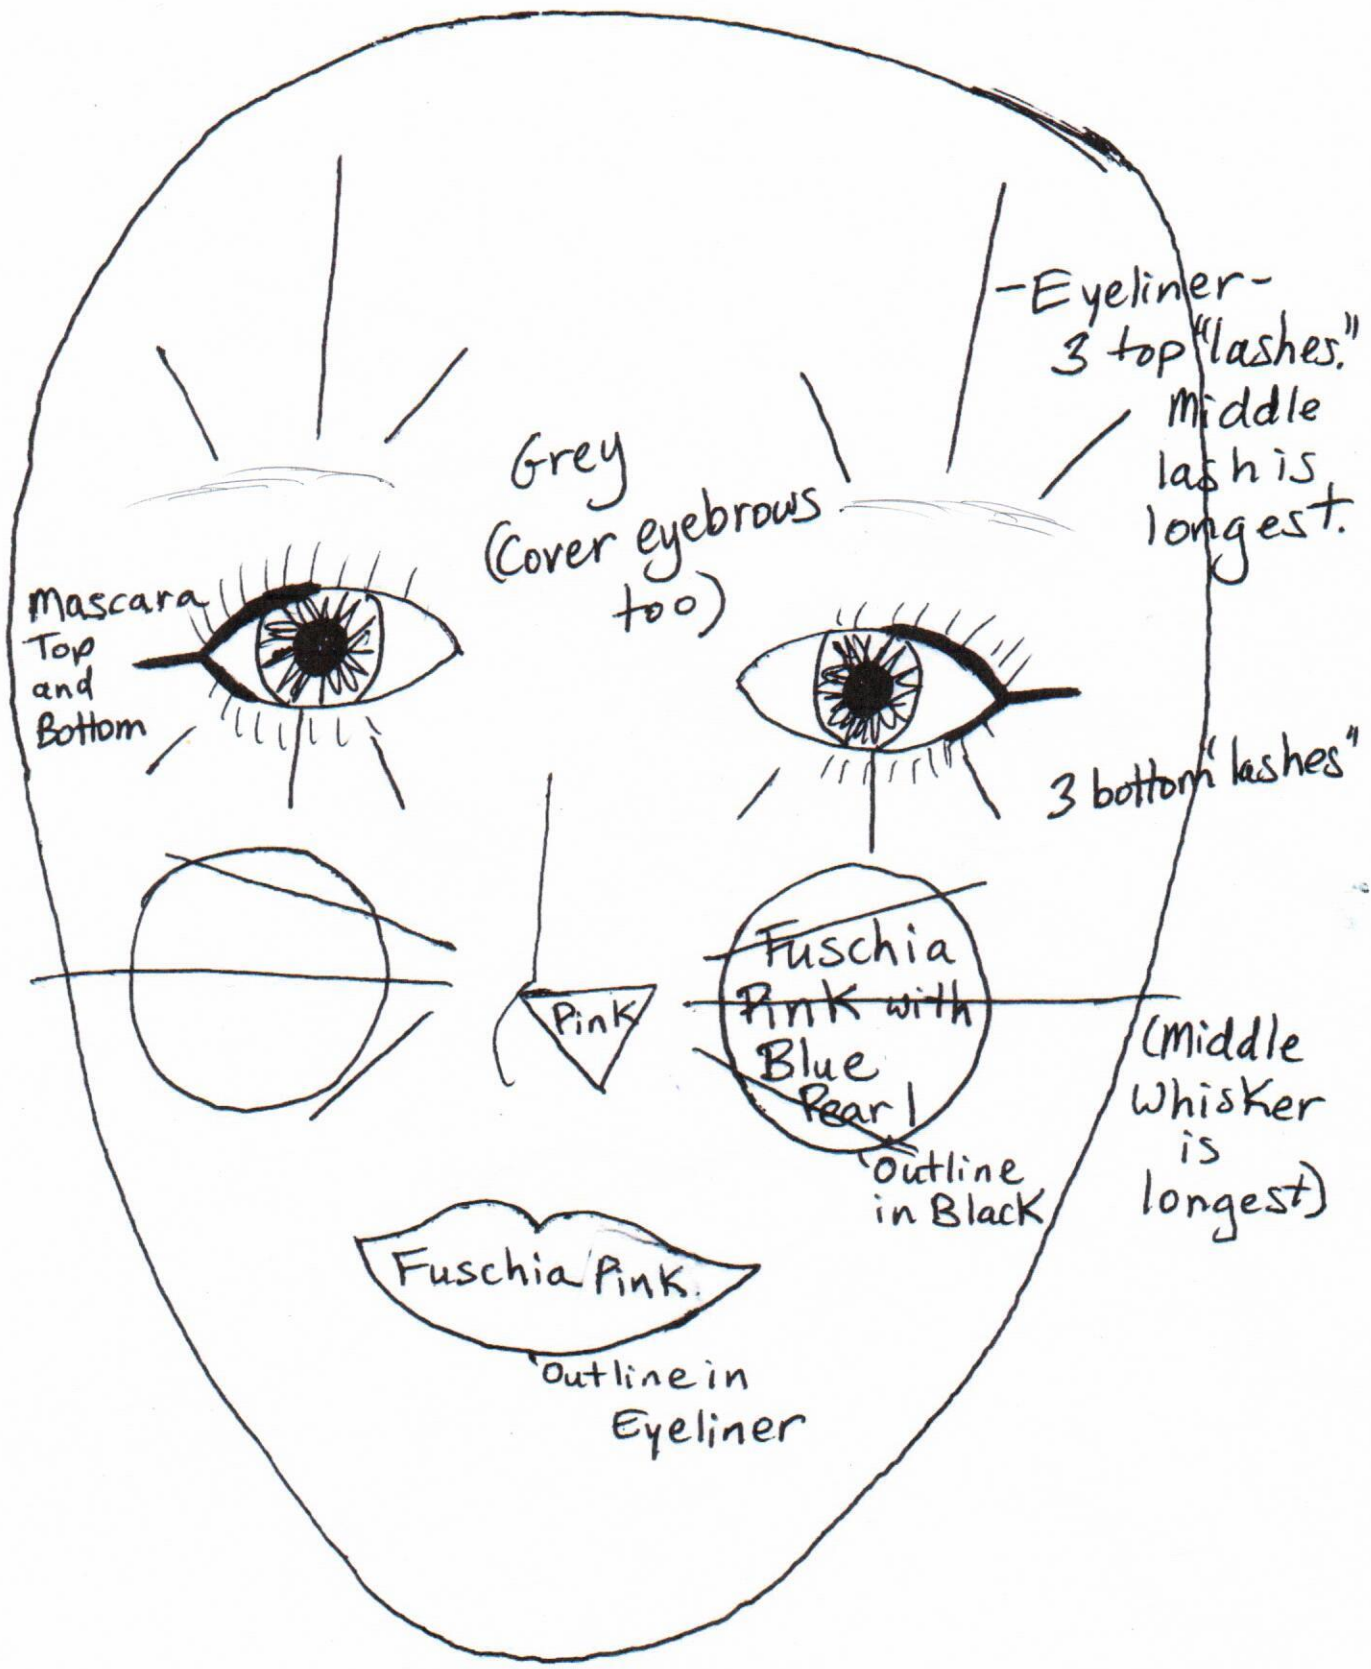 -Eyeliner-
3 top "lashes."
Middle
lash is
longest.
Grey
(Cover eyebrows
too)
Mascara
Top
and
Bottom
3 bottom "lashes"
Fuschia
Pink with
Blue
Pearl
Pink
(Middle
Whisker
is
longest)
Outline
in Black
Fuschia Pink
Outline in
Eyeliner